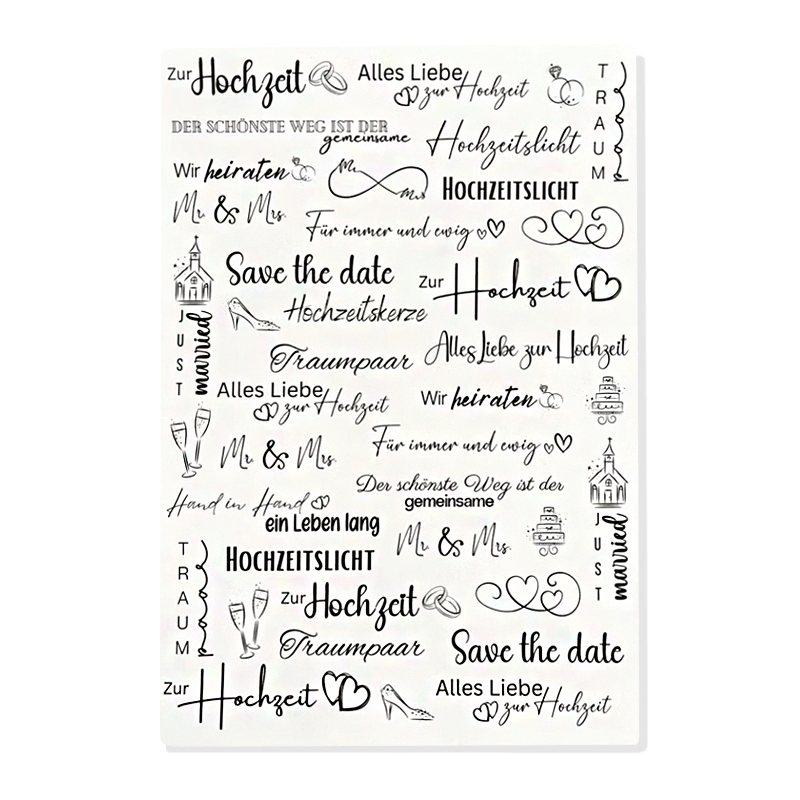 Zur Hochzeit
Alles Liebe
zur Hochzeit
TRAUM
paar
DER SCHÖNSTE WEG IST DER
gemeinsame
Hochzeitslicht
Wir heiraten
Mr.
Mrs.
HOCHZEITSLICHT
Mr. & Mrs.
Für immer und ewig
Save the date
Zur Hochzeit
Hochzeitskerze
JUST
married
Traumpaar
Alles Liebe zur Hochzeit
Alles Liebe
zur Hochzeit
Wir heiraten
Mr. & Mrs.
Für immer und ewig
Der schönste Weg ist der
gemeinsame
Hand in Hand
ein Leben lang
Mr. & Mrs.
JUST
married
TRAUM
paar
HOCHZEITSLICHT
Zur Hochzeit
Traumpaar
Save the date
Zur Hochzeit
Alles Liebe
zur Hochzeit